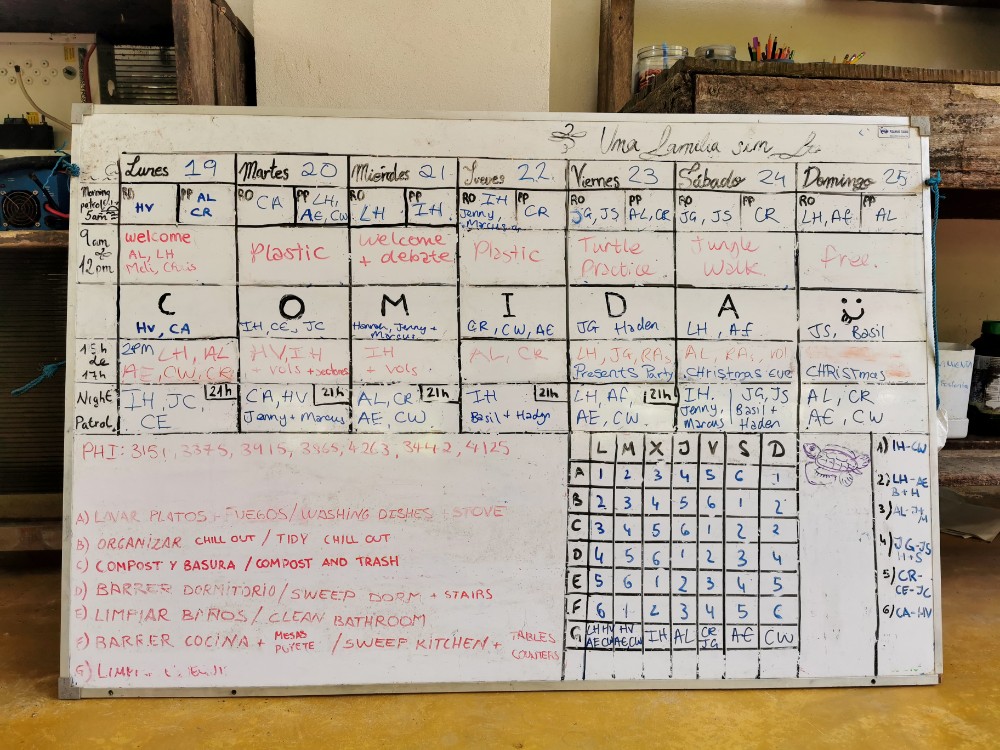 Uma familia sim
Lunes 19 Martes 20 Miercoles 21 Jueves 22 Viernes 23 Sábado 24 Domingo 25
Morning patrol 5am
RO HV PP AL CR
RO CA PP LH, AE, CW
RO LH PP IH
RO IH Jenny, Marcus PP CR
RO JG, JS PP AL, CR
RO JG, JS PP CR
RO LH, Af PP AL
9am
12pm
welcome
AL, LH
Meli, Chris
Plastic
welcome
+ debate
Plastic
Turtle
Practice
Jungle
Walk.
free.
C O M I D A
HV, CA
IH, CE, JC
Hannah, Jenny +
Marcus
CR, CW, AE
JG Haden
LH, Af
JS, Basil
15h
de
17h
2PM LH, AL
AE, CW, CR
HV, IH
+ vols
IH
+ vols.
AL, CR
LH, JG, RAs
Presents Party
AL, RA, vol
Christmas eve
CHRISTMAS
Night
Patrol
IH, JC, 21h
CE
CA, HV 21h
Jenny + Marcus
AL, CR 21h
AE, CW
IH 21h
Basil + Haden
LH, Af, 21h
AE, CW
IH,
Jenny,
Marcus
JG, JS
Basil +
Haden
AL, CR
AE, CW
PHI: 3151, 3375, 3915, 3965, 4263, 3442, 4125
A) LAVAR PLATOS + FUEGOS / WASHING DISHES + STOVE
B) ORGANIZAR CHILL OUT / TIDY CHILL OUT
C) COMPOST Y BASURA / COMPOST AND TRASH
D) BARRER DORMITORIO / SWEEP DORM + STAIRS
E) LIMPIAR BAÑOS / CLEAN BATHROOM
F) BARRER COCINA + MESAS / SWEEP KITCHEN + TABLES COUNTERS
G)
L M X J V S D
A 1 2 3 4 5 6 1
B 2 3 4 5 6 1 2
C 3 4 5 6 1 2 2
D 4 5 6 1 2 3 4
E 5 6 1 2 3 4 5
F 6 1 2 3 4 5 6
G LH HV AE CW HV AE CW IH AL CR JG AE CW
1) IH-CW
2) LH-AE
B+H
3) AL-J+
M
4) JG-JS
H+S
5) CR-
CE-JC
6) CA-HV